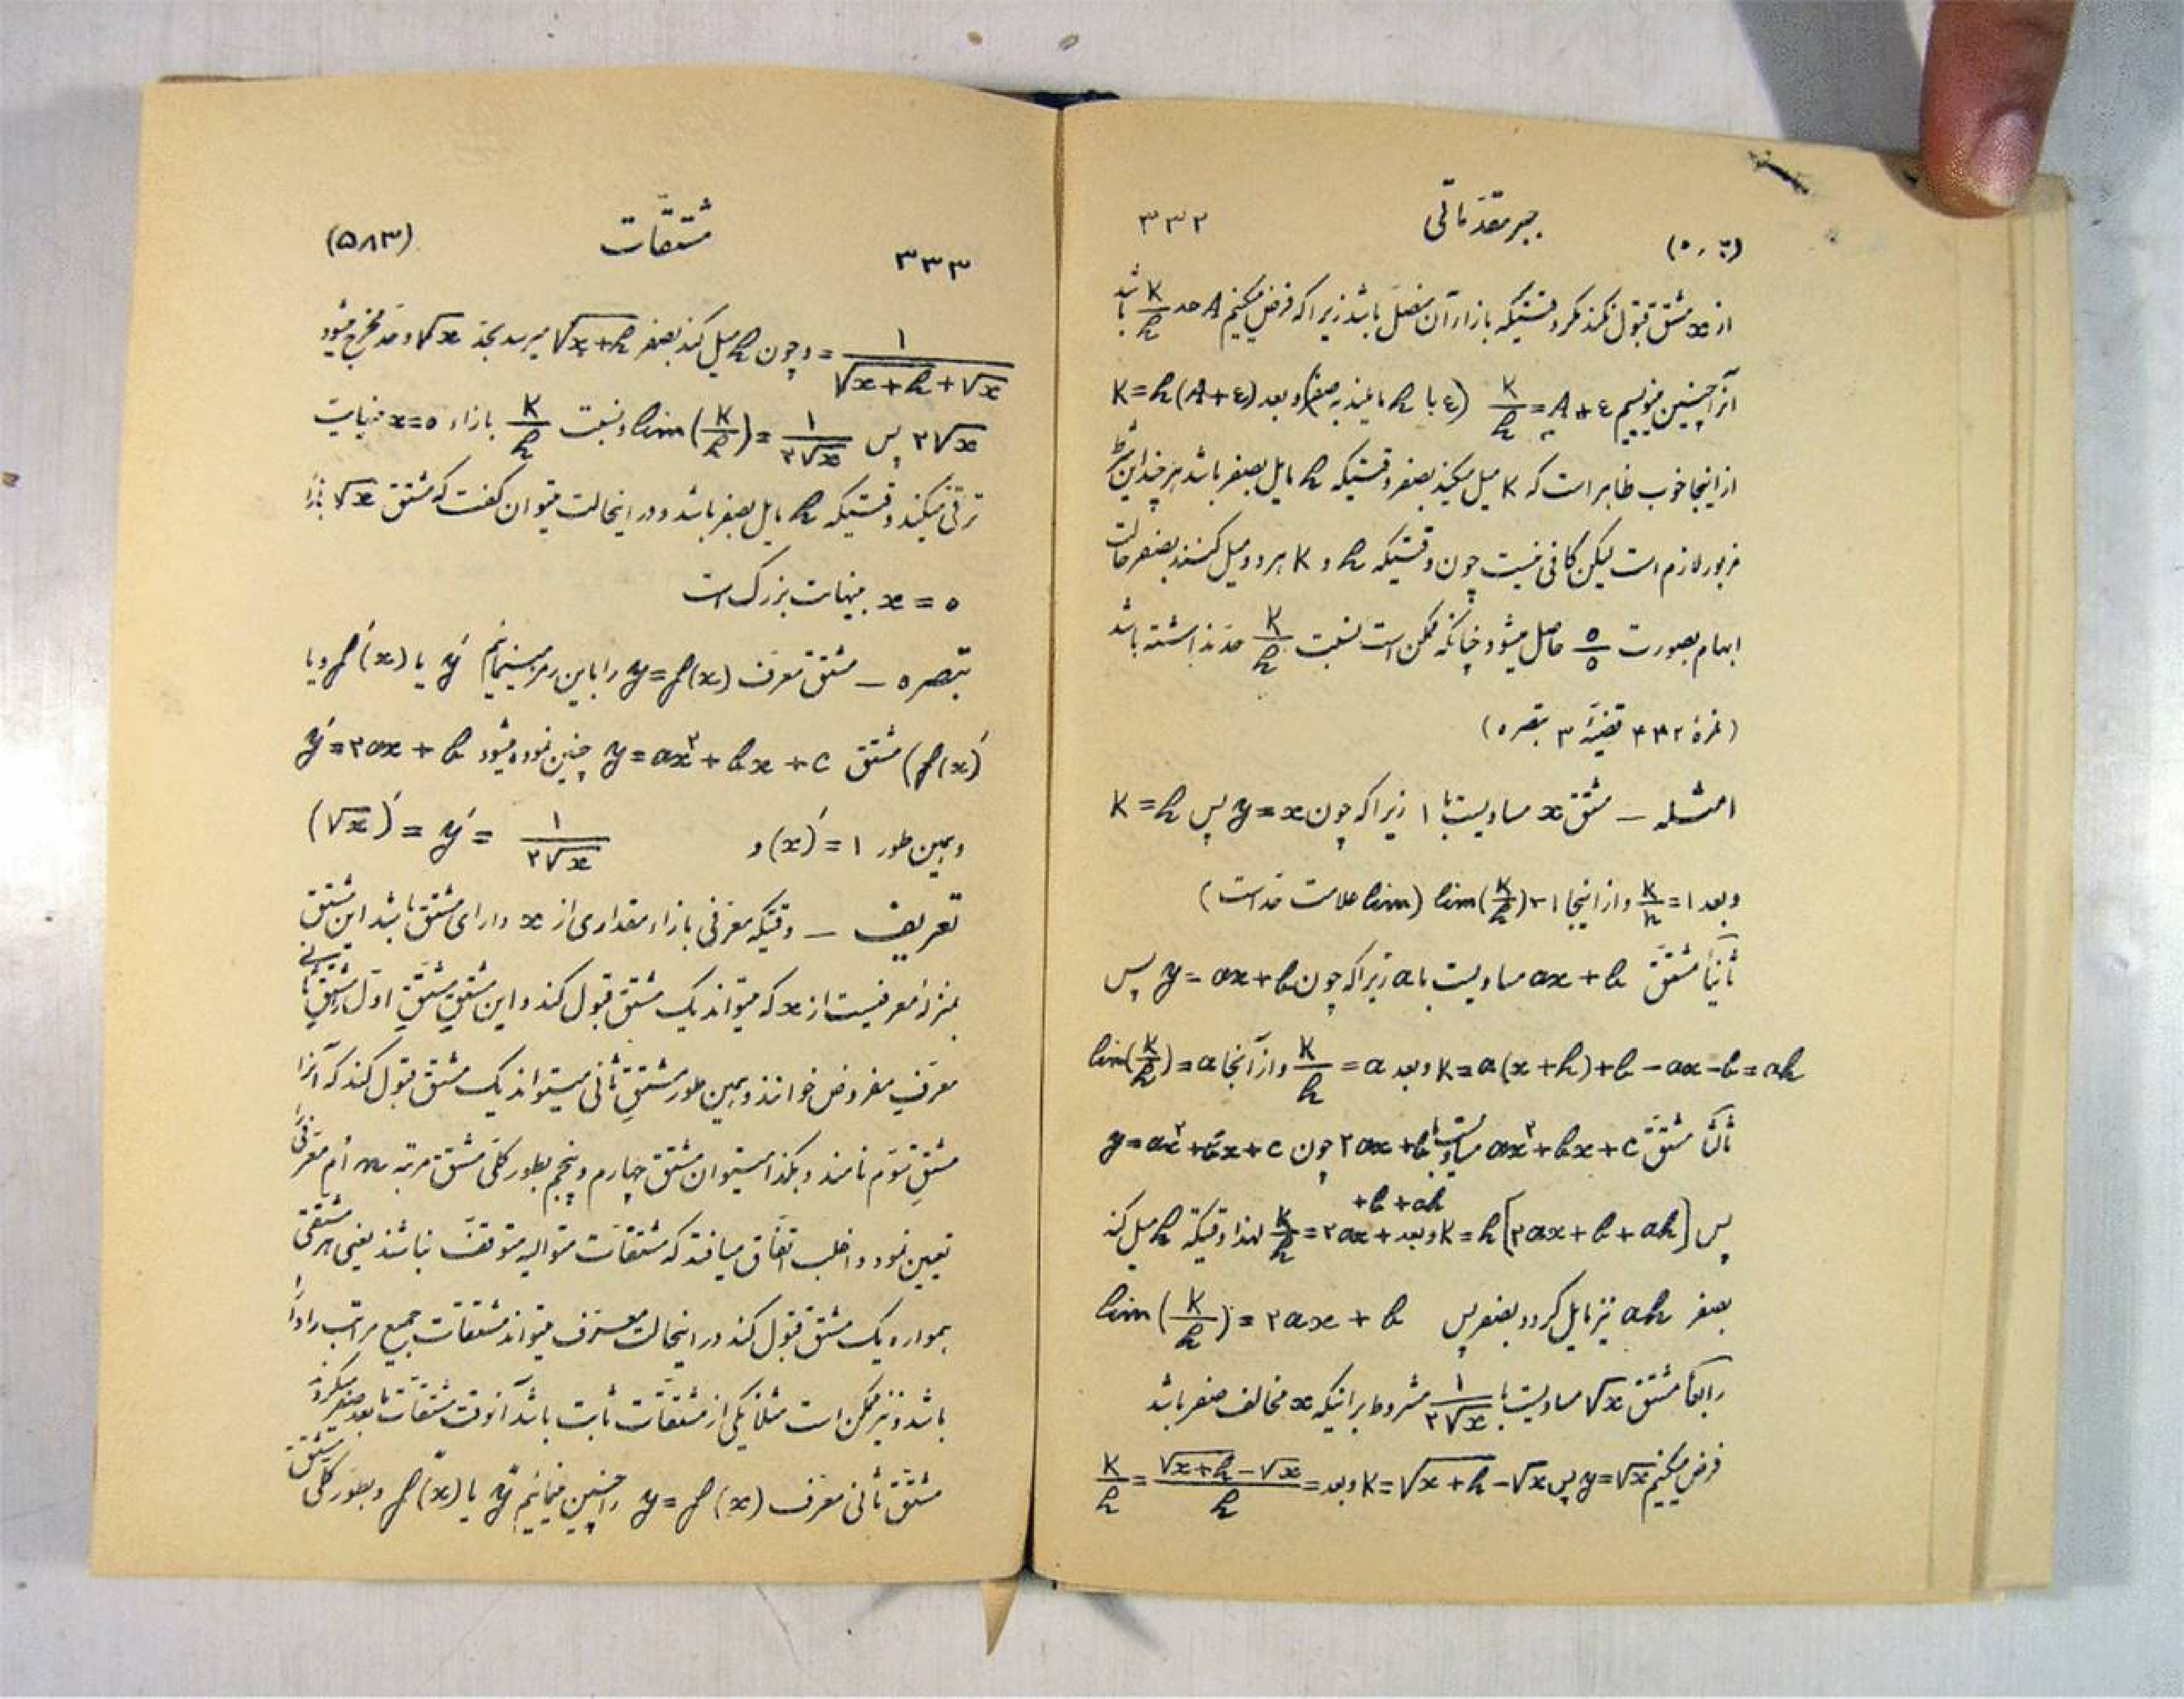 جبر مقدماتی ۳۳۲
از x مشتق قبول نکند مگر وقتیکه بازاء آن متصل باشد زیرا که فرض میکنیم A حد K/h باشد
آنرا چنین مینویسیم K/h = A+ε (ε با h مایلند به صفر) و بعد K=h(A+ε)
از اینجا خوب ظاهر است که K میل میکند بصفر وقتیکه h مایل بصفر باشد هر چند این شرط
مزبور لازم است لیکن کافی نیست چون وقتیکه h و K هر دو میل کنند بصفر حالت
ابهام بصورت ۰/۰ حاصل میشود چنانکه ممکن است نسبت K/h حد نداشته باشد
(نمرهٔ ۴۴۲ قضیهٔ ۳ تبصره)
امثله – مشتق x مساویست با ۱ زیرا که چون y=x پس K=h
و بعد K/h=۱ و از اینجا lim(K/h)=۱ (lim علامت حد است)
ثانیاً مشتق ax+b مساویست با a زیرا که چون y=ax+b پس
K=a(x+h)+b-ax-b=ah و بعد K/h=a و از آنجا lim(K/h)=a
ثالثاً مشتق ax²+bx+c مساویست با ۲ax+b چون y=ax²+bx+c
پس K=h[۲ax+b+ah] و بعد K/h=۲ax+b+ah لهذا وقتیکه h میل کند
بصفر ah نیز مایل گردد بصفر پس lim(K/h)=۲ax+b
رابعاً مشتق √x مساویست با ۱/۲√x مشروط بر اینکه x مخالف صفر باشد
فرض میکنیم y=√x پس K=√x+h-√x و بعد K/h=√x+h-√x/h=
(۵۸۳) مشتقات ۳۳۳
۱/√x+h+√x = و چون h میل کند بصفر √x+h میرسد بحد √x و حد مخرج میشود
۲√x پس lim(K/h)=۱/۲√x و نسبت K/h بازاء x=۰ بینهایت
ترقی میکند وقتیکه h مایل بصفر باشد و در اینحالت میتوان گفت که مشتق √x بازاء
x=۰ بینهایت بزرگ است
تبصره – مشتق معرف y=f(x) را باین رمز مینمائیم y′ یا f′(x) و یا
(f(x))′ مشتق y=ax²+bx+c چنین نموده میشود y′=۲ax+b
و بهمین طور (x)′=۱ و (√x)′=y′=۱/۲√x
تعریف – وقتیکه معرفی بازاء مقداری از x دارای مشتق باشد این مشتق
بمنزلهٔ معرفیست از x که میتواند یک مشتق قبول کند و این مشتقِ مشتقِ اوّل را مشتقِ ثانی
معرّف مفروض خوانند و بهمین طور مشتقِ ثانی میتواند یک مشتق قبول کند که آنرا
مشتقِ سوّم نامند و هکذا میتوان مشتق چهارم و پنجم بطور کلی مشتق مرتبه n ام معرّفی را
تعیین نمود و اغلب اتفاق میافتد که مشتقات متوالیه متوقف نباشند یعنی هر مشتقی
همواره یک مشتق قبول کند در اینحالت معرف میتواند مشتقات جمیع مراتب را دارا
باشد و نیز ممکن است مثلا یکی از مشتقات ثابت باشد آنوقت مشتقات ما بعد صفر میگردند
مشتق ثانی معرف y=f(x) را چنین مینمائیم y″ یا f″(x) و بطور کلی مشتق